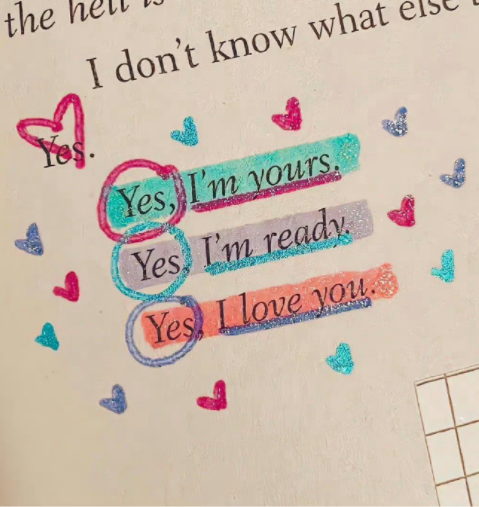 the hell is
I don't know what else
Yes.
Yes, I'm yours.
Yes, I'm ready.
Yes, I love you.